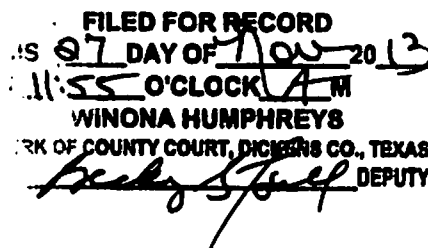 FILED FOR RECORD
IS 27 DAY OF Nov 2013
11:55 O'CLOCK A M
WINONA HUMPHREYS
RK OF COUNTY COURT, DICKENS CO., TEXAS
Becky DEPUTY